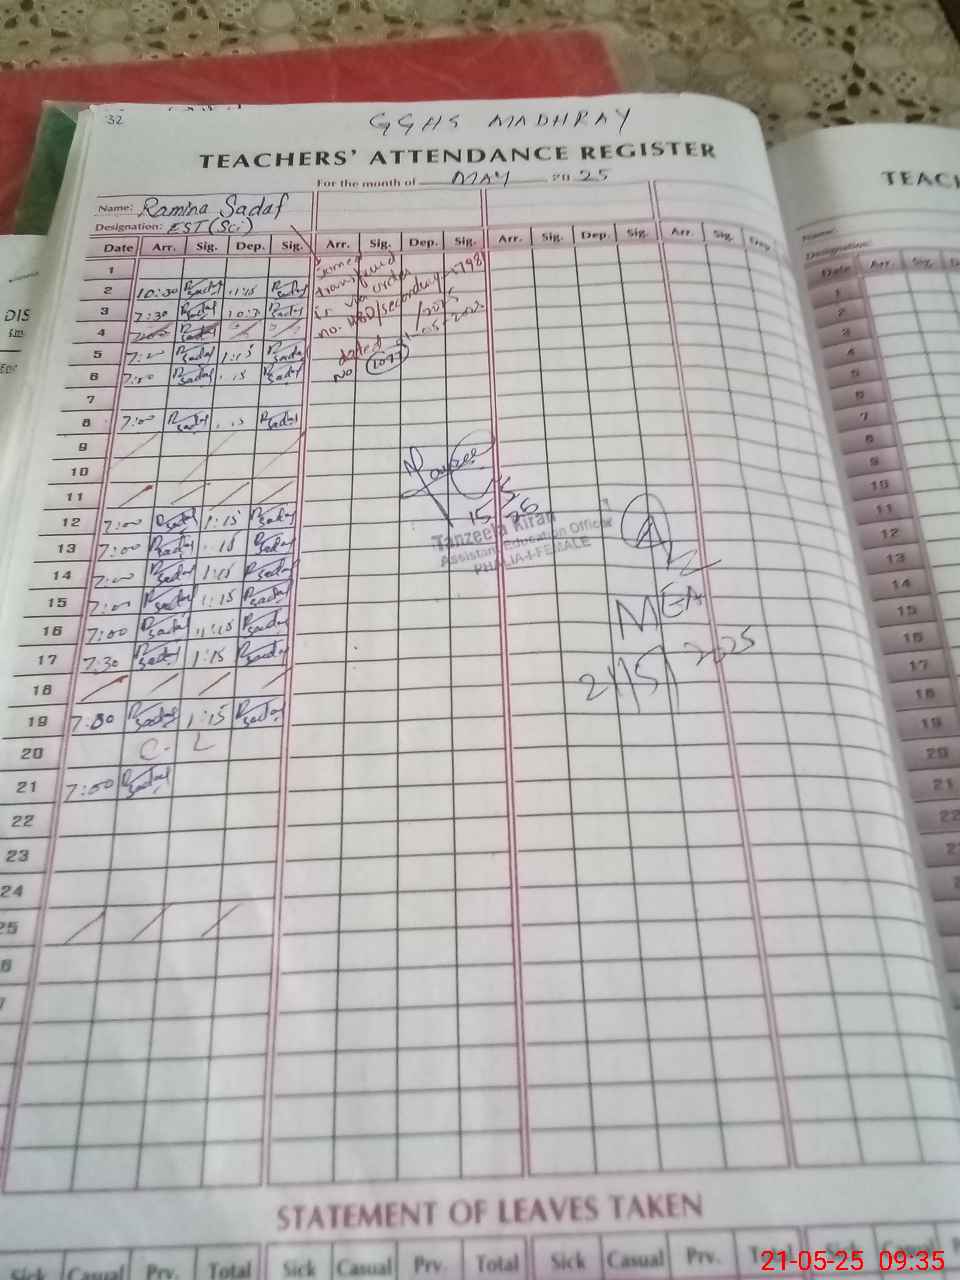 32
GGHS MADHRAY
TEACHERS' ATTENDANCE REGISTER
For the month of MAY 20 25
Name: Ramina Sadaf
Designation: EST (Sci)
Date Arr. Sig. Dep. Sig. Arr. Sig. Dep. Sig. Arr. Sig. Dep. Sig. Arr. Sig. Dep.
1
2 10:30 Sadaf 1:15 Sadaf
3 7:30 Sadaf Sadaf
4
5 Sadaf 1:15 Sadaf
6 7:00 Sadaf Sadaf
7
8 7:00 Sadaf Sadaf
9
10
11
12 7:00 Sadaf 1:15 Sadaf
13 7:00 Sadaf 1:15 Sadaf
14 7:00 Sadaf 1:15 Sadaf
15 7:00 Sadaf 1:15 Sadaf
16 7:00 Sadaf 1:15 Sadaf
17 7:30 Sadaf 1:15 Sadaf
18
19 7:00 Sadaf 1:15 Sadaf
20 C. L
21 7:00 Sadaf
22
23
24
25
via order
dated
No 1077
15
Tanzeela Kiran
Assistant Education Officer
PHALIA-I-FEMALE
MEA
21/5/2025
STATEMENT OF LEAVES TAKEN
Sick Casual Prv. Total Sick Casual Prv. Total Sick Casual Prv. Total
TEACH
Name:
Designation:
Date Arr. Sig.
1
2
3
4
5
6
7
8
9
10
11
12
13
14
15
16
17
18
19
20
21
22
DIS
21-05-25 09:35